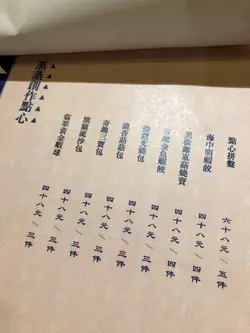 蒸蒸創作點心
點心拼盤 六十八元/五件
海中明蝦餃 四十八元/四件
黑松露東菇燒賣 四十八元/四件
金魚蝦餃 四十八元/三件
叉燒包 四十八元/三件
濃香菇菇包 四十八元/三件
奇趣三寶包 四十八元/三件
熊貓流沙包 四十八元/三件
翡翠黃金蝦球 四十八元/三件